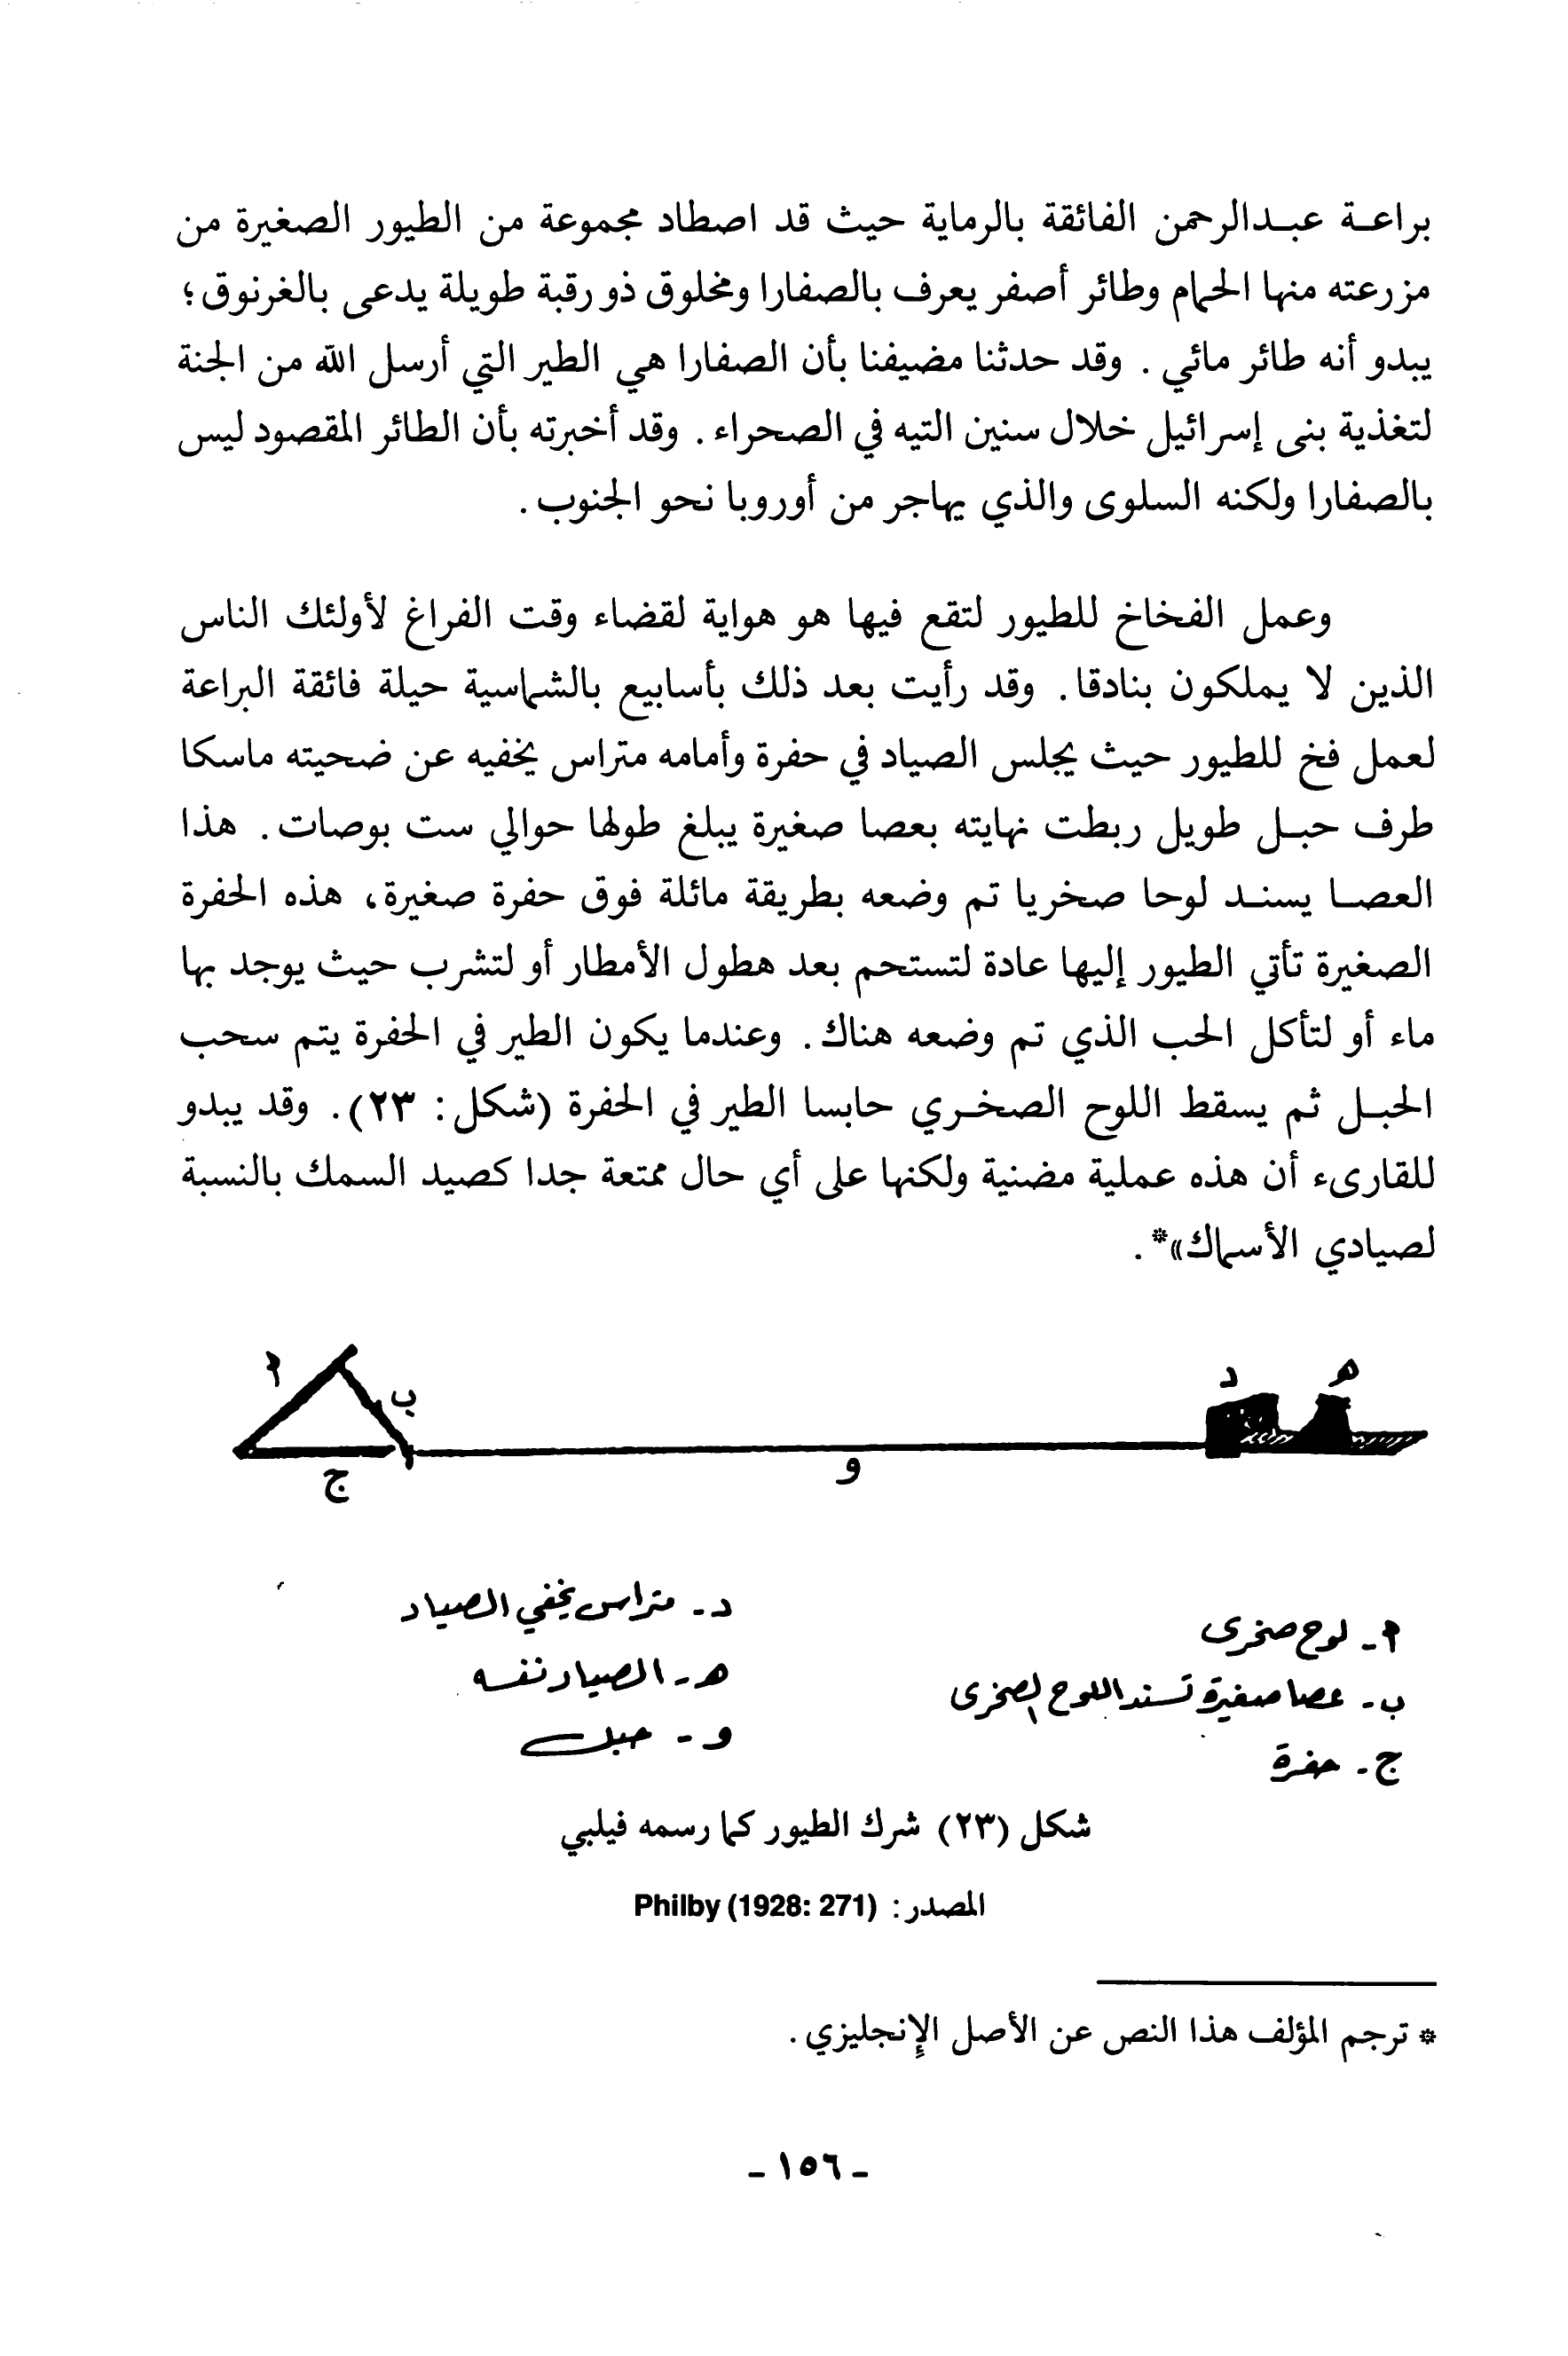 براعة عبدالرحمن الفائقة بالرماية حيث قد اصطاد مجموعة من الطيور الصغيرة من
مزرعته منها الحمام وطائر أصفر يعرف بالصفارا ومخلوق ذو رقبة طويلة يدعى بالغرنوق؛
يبدو أنه طائر مائي. وقد حدثنا مضيفنا بأن الصفارا هي الطير التي أرسل الله من الجنة
لتغذية بنى إسرائيل خلال سنين التيه في الصحراء. وقد أخبرته بأن الطائر المقصود ليس
بالصفارا ولكنه السلوى والذي يهاجر من أوروبا نحو الجنوب.
وعمل الفخاخ للطيور لتقع فيها هو هواية لقضاء وقت الفراغ لأولئك الناس
الذين لا يملكون بنادقا. وقد رأيت بعد ذلك بأسابيع بالشماسية حيلة فائقة البراعة
لعمل فخ للطيور حيث يجلس الصياد في حفرة وأمامه متراس يخفيه عن ضحيته ماسكا
طرف حبل طويل ربطت نهايته بعصا صغيرة يبلغ طولها حوالي ست بوصات. هذا
العصا يسند لوحا صخريا تم وضعه بطريقة مائلة فوق حفرة صغيرة، هذه الحفرة
الصغيرة تأتي الطيور إليها عادة لتستحم بعد هطول الأمطار أو لتشرب حيث يوجد بها
ماء أو لتأكل الحب الذي تم وضعه هناك. وعندما يكون الطير في الحفرة يتم سحب
الحبل ثم يسقط اللوح الصخري حابسا الطير في الحفرة (شكل: ٢٣). وقد يبدو
للقارىء أن هذه عملية مضنية ولكنها على أي حال ممتعة جدا كصيد السمك بالنسبة
لصيادي الأسماك»*.
هـ د ب أ
و ج
أ- لوح صخرى
ب- عصا صغيرة تسند اللوح الصخرى
ج- حفرة
د- متراس يخفي الصياد
هـ- الصياد نفسه
و- حبل
شكل (٢٣) شرك الطيور كما رسمه فيلبي
المصدر: Philby (1928: 271)
* ترجم المؤلف هذا النص عن الأصل الإنجليزي.
- ١٥٦ -